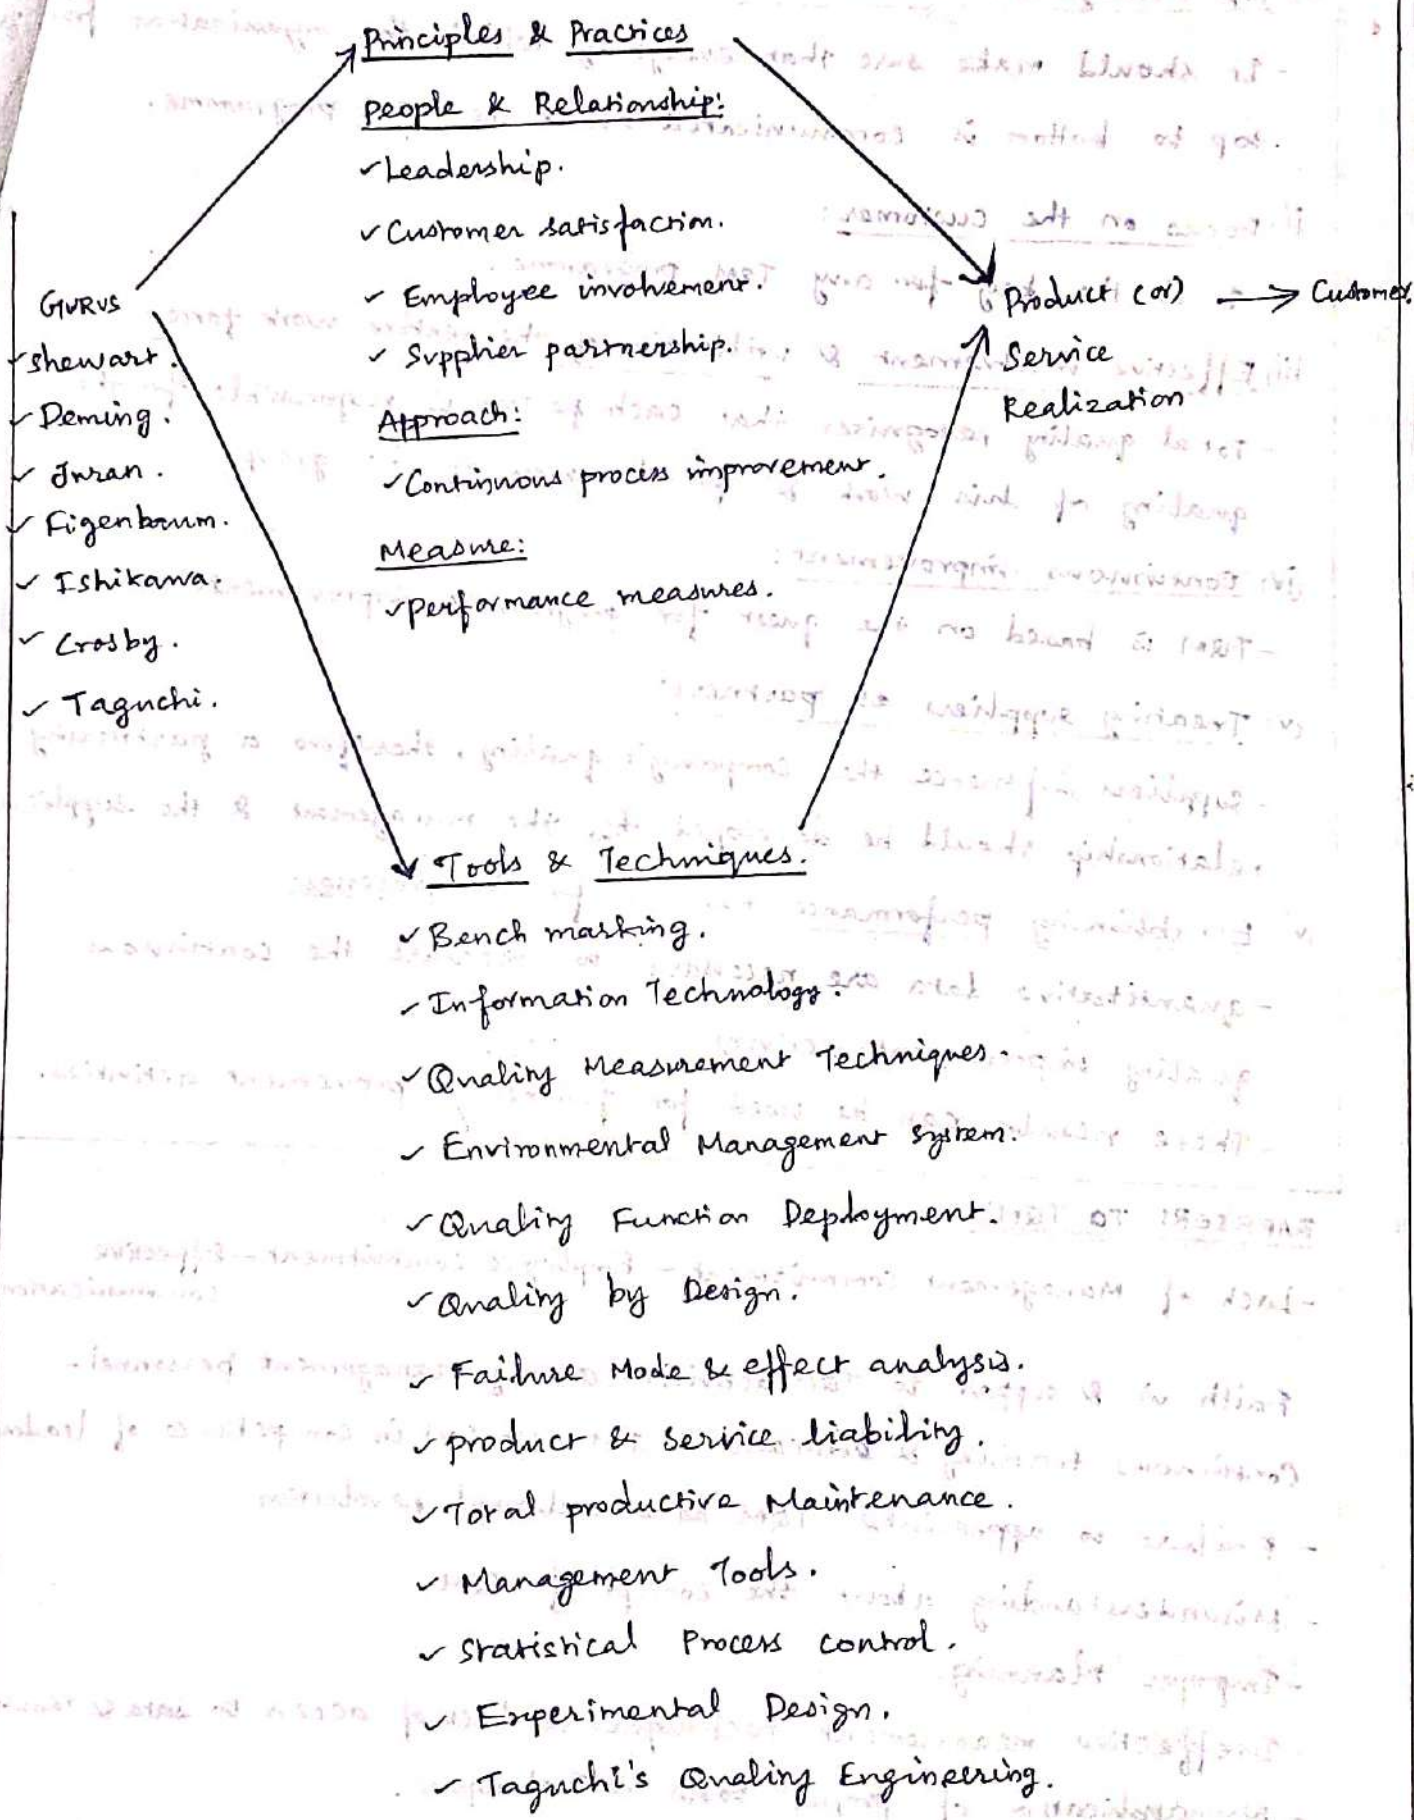 Principles & Practices
People & Relationship:
✓ Leadership.
✓ Customer satisfaction.
✓ Employee involvement.
✓ Supplier partnership.
Approach:
✓ Continuous process improvement.
Measure:
✓ performance measures.
GURUS
✓ Shewart.
✓ Deming.
✓ Juran.
✓ Figenbaum.
✓ Ishikawa.
✓ Crosby.
✓ Taguchi.
Product (or) → Customer.
Service
Realization
Tools & Techniques.
✓ Bench marking.
✓ Information Technology.
✓ Quality Measurement Techniques.
✓ Environmental Management system.
✓ Quality Function Deployment.
✓ Quality by Design.
✓ Failure Mode & effect analysis.
✓ product & service liability.
✓ Total productive Maintenance.
✓ Management Tools.
✓ Statistical Process control.
✓ Experimental Design.
✓ Taguchi's Quality Engineering.